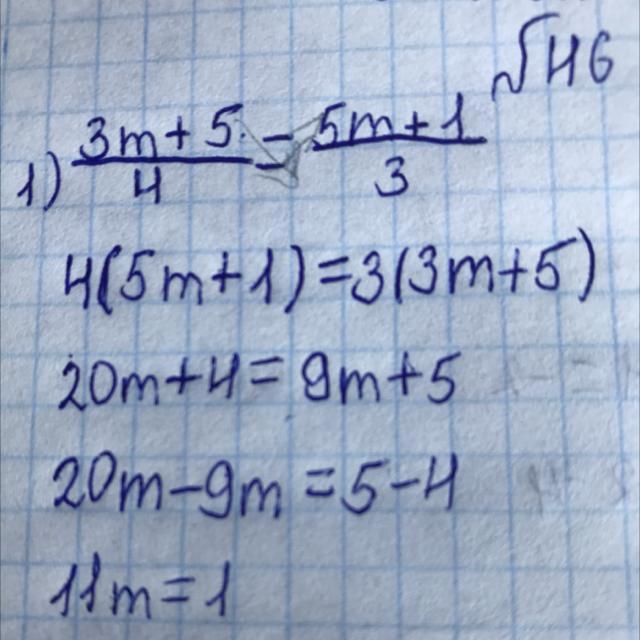 √46
1) 3m+5/4 = 5m+1/3
4(5m+1)=3(3m+5)
20m+4=9m+5
20m-9m=5-4
11m=1